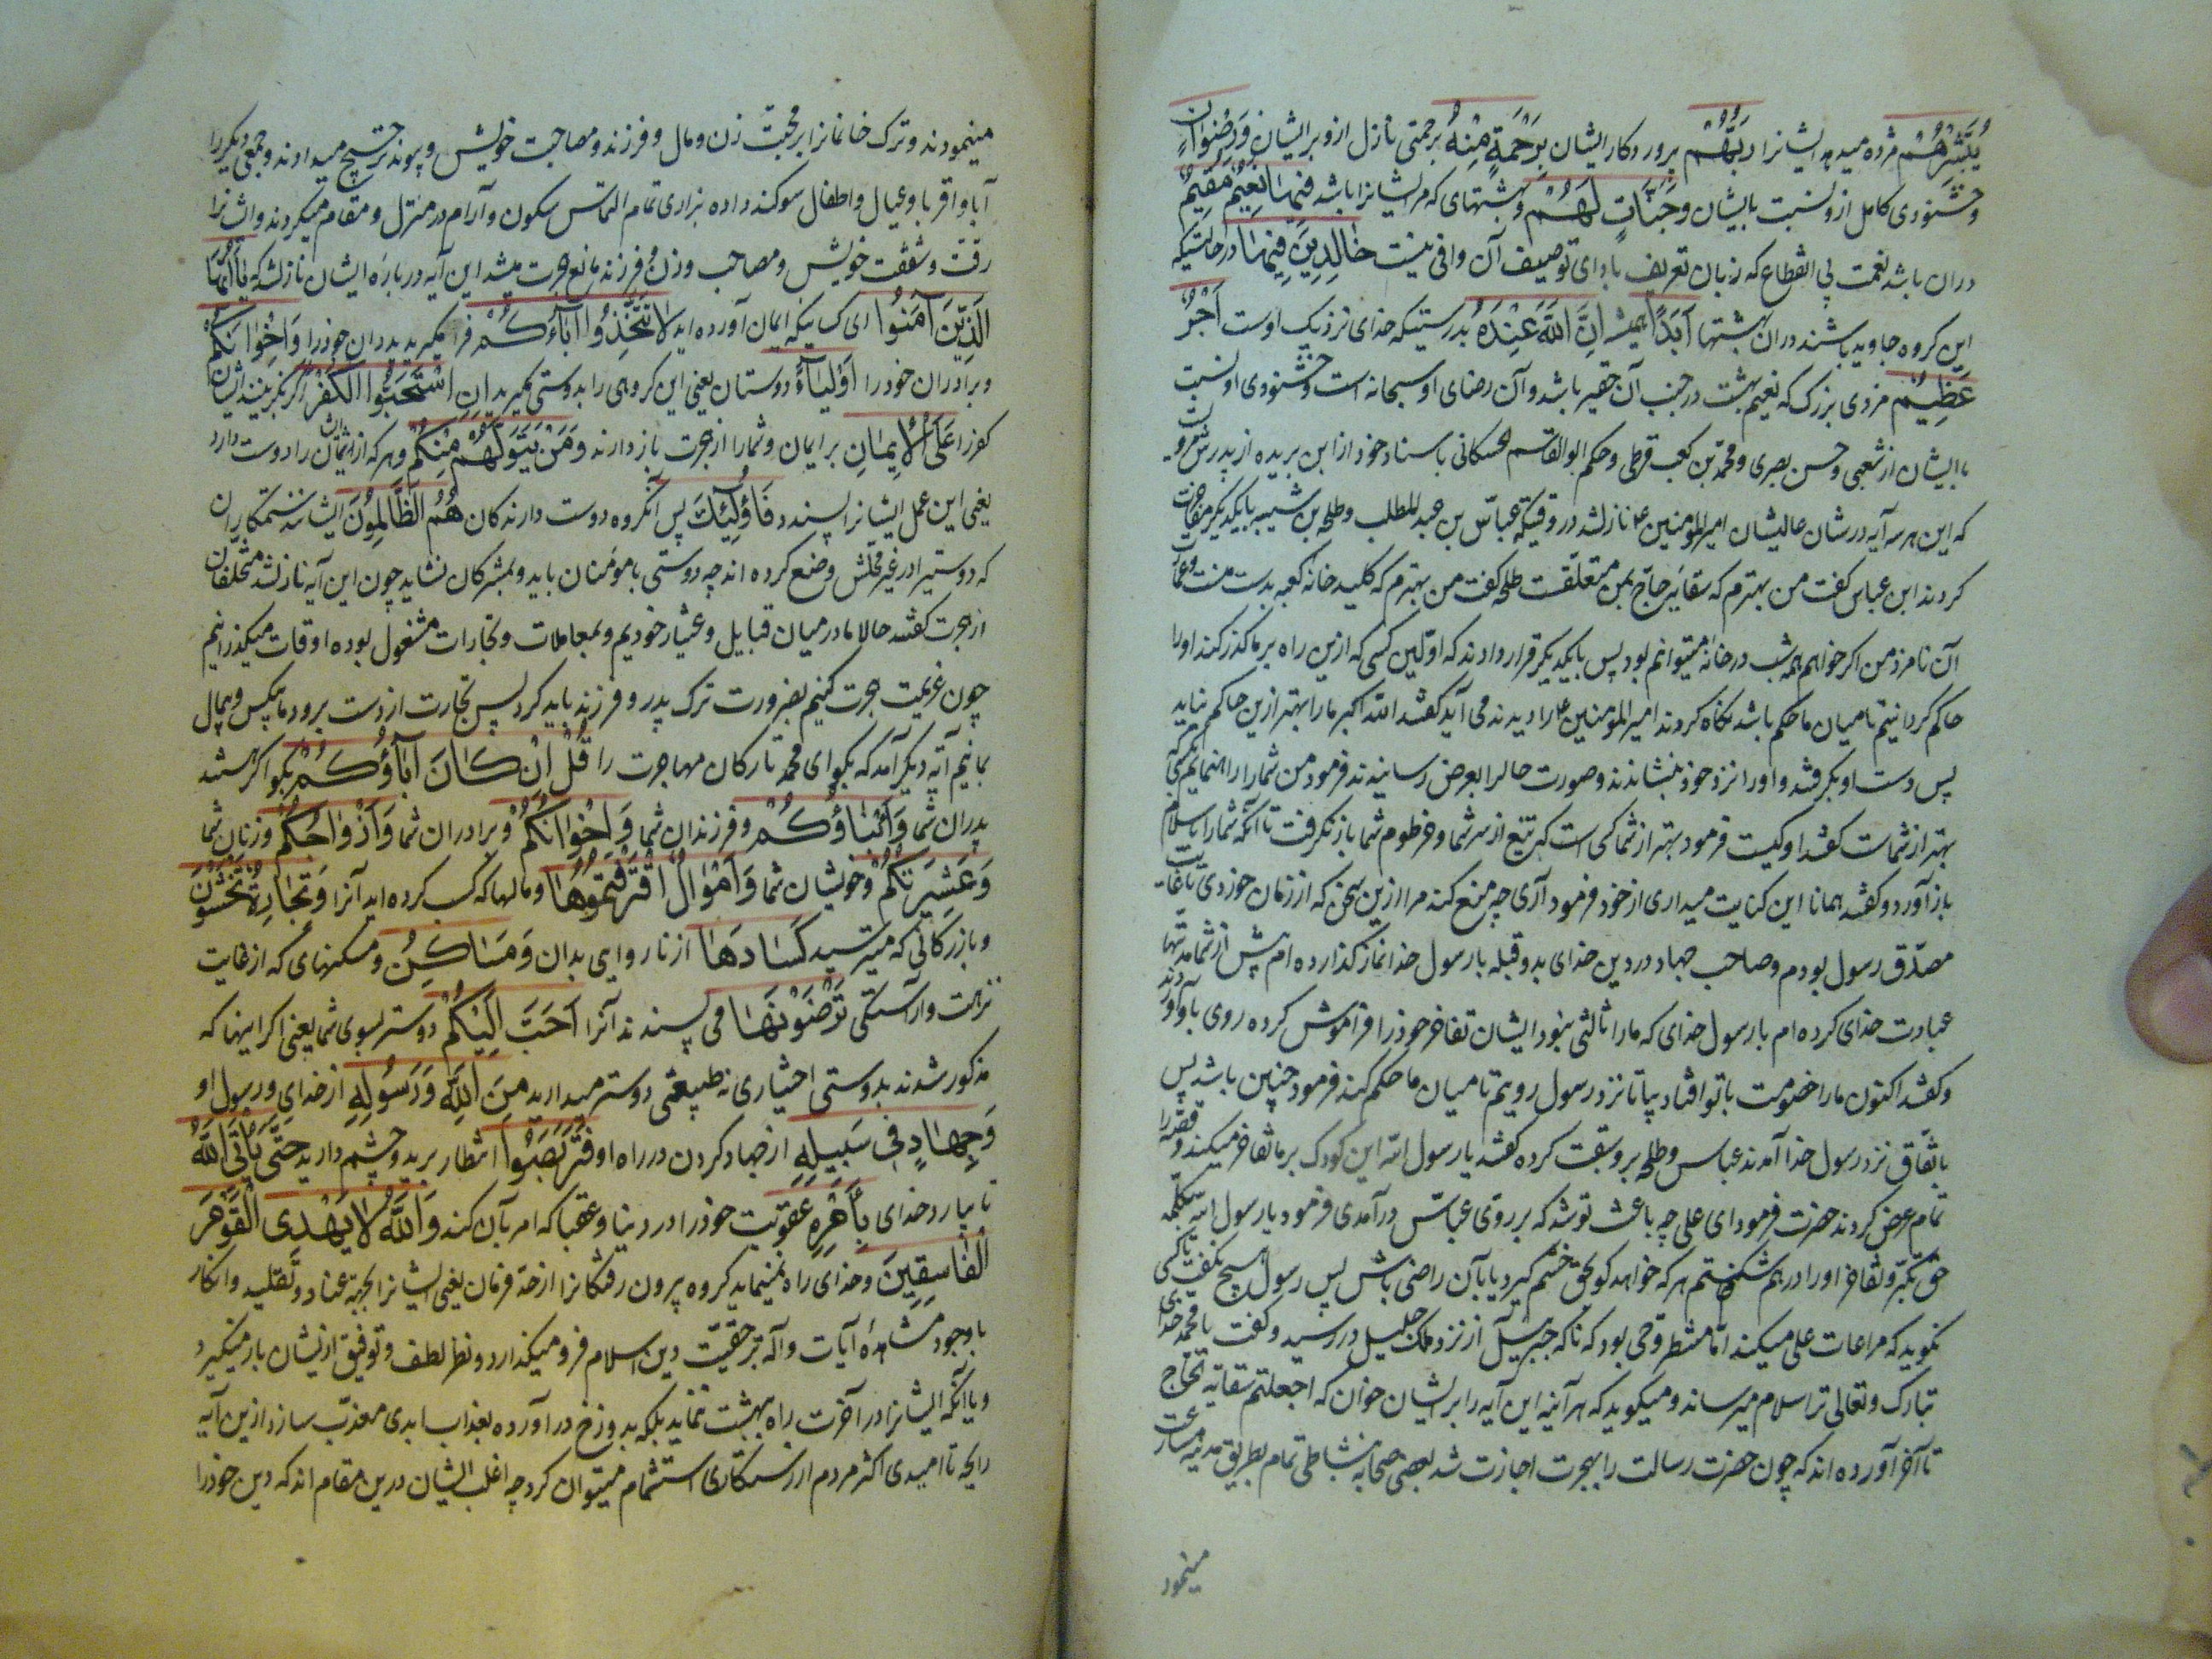 یُبَشِّرُهُمْ مژده میدهد ایشانرا رَبُّهُمْ پروردکار ایشان بِرَحْمَةٍ مِنْهُ برحمتی نازل ازو بر ایشان وَرِضْوَانٍ
وخشنودی کامل ازو نسبت بایشان وَجَنّاتٍ لَهُمْ وبهشتهای که مر ایشانرا باشد فِیهَا نَعِیمٌ مُقِیمٌ
دران باشد نعمت بی انقطاع که زبان تعریف باوای توصیف آن وافی نیست خَالِدِینَ فِیهَا درحالتیکه
این کروه جاوید باشند دران بهشتها اَبَدًا همیشه اِنَّ اللّهَ عِنْدَهُ بدرستیکه خدای نزدیک اوست اَجْرٌ
عَظِیمٌ مزدی بزرک که نعیم بهشت در جنب آن حقیر باشد وآن رضای او سبحانه است وخشنودی او نسبت
بایشان از شعبی وحسن بصری ومحمد بن کعب قرظی وحکم ابوالقاسم الحسکانی باسناد خود از ابن بریده از پدرش مرویست
که این هر سه آیه در شان عالیشان امیرالمومنین ع نازلشد در وقتیکه عباس بن عبدالمطلب وطلحه بن شیبه بایکدیکر مفاخرت
کردند ابن عباس کفت من بهترم که سقایه حاج بمن متعلقست طلحه کفت من بهترم که کلید خانه کعبه بدست منست وعمارت
آن نامزد من اکر خواهم همه شب در خانه میتوانم بود پس بایکدیکر قرار دادند که اولین کسی که ازین راه بر ما کذر کند اورا
حاکم کردانیم تا میان ما حکم باشد نکاه کردند امیرالمومنین ع را دیدند می آید کفتند الله اکبر مارا بهتر ازین حاکم نباید
پس دست او بکرفتند واورا نزد خود بنشاندند وصورت حال را بعرض رسانیدند فرمود من شمارا راهنمایم بکسی که
بهتر از شماست کفتند او کیست فرمود بهتر از شما کسی است که تیغ از سر شما وخرطوم شما باز نکرفت تا آنکه شمارا باسلام
باز آورد وکفتند همانا این کنایت میداری از خود فرمود آری چه منع کند مرا ازین سخن که از زمان خوردی تا غایت
مصدق رسول بودم وصاحب جهاد در دین خدای بدو قبله با رسول خدا نماز کذارده ام پیش از شما مدتها
عبادت خدای کرده ام با رسول خدای که مارا ثالثی نبود ایشان تفاخر خودرا فراموش کرده روی باو آوردند
وکفتند اکنون مارا خصومت با تو افتاد بیا تا نزد رسول رویم تا میان ما حکم کند فرمود چنین باشد پس
باتفاق نزد رسول خدا آمدند عباس وطلحه برو سبقت کرده کفتند یا رسول الله این کودک بر ما تفاخر میکند وقصه را
تمام عرض کردند حضرت فرمود ای علی چه باعث تو شد که بر روی عباس در آمدی فرمود یا رسول الله بکلمه
حق تکبر وتفاخر اورا درهم شکستم هر که خواهد کو بحق خشم کیرد یا بآن راضی باش پس رسول هیچ نکفت تا کسی
نکوید که مراعات علی میکند اما منتظر وحی بود که ناکه جبرئیل از نزد ملک جلیل در رسید وکفت یا محمد خدای
تبارک وتعالی ترا سلام میرساند ومیکوید که هر آینه این آیه را بر ایشان خوان که اجعلتم سقایة الحاج
تا آخر آورده اند که چون حضرت رسالت را بهجرت اجازت شد بعضی صحابه بنشاطی تمام بطریق مدینه مسارعت
مینمود
مینمودند وترک خانمانرا بر محبت زن ومال وفرزند ومصاحبت خویش وپیوند ترجیح میدادند وجمعی دیکررا
آبا واقربا وعیال واطفال سوکند داده بزاری تمام التماس سکون وآرام در منزل ومقام میکردند وایشانرا
رقت وشفقت خویش ومصاحب وزن وفرزند مانع هجرت میشد این آیه درباره ایشان نازلشد که یَا اَیُّهَا
الَّذِینَ آمَنُوا ای کسانیکه ایمان آورده اید لَا تَتَّخِذُوا آبَاءَکُمْ فرا مکیرید پدران خودرا وَاِخْوَانَکُمْ
وبرادران خودرا اَوْلِیَاءَ دوستان یعنی این کروهی را بدوستی مکیرید اِنِ اسْتَحَبُّوا الْکُفْرَ اکر بکزینند ایشان
کفررا عَلَی الْاِیمَانِ بر ایمان وشمارا از هجرت باز دارند وَمَنْ یَتَوَلَّهُمْ مِنْکُمْ وهر که از شما ایشان را دوست دارد
یعنی این عمل ایشانرا پسندد فَاُولئِکَ پس آنکروه دوست دارندکان هُمُ الظَّالِمُونَ ایشانند ستمکاران
که دوستیرا در غیر محلش وضع کرده اند چه دوستی با مومنان باید وبمشرکان نشاید چون این آیه نازلشد متخلفان
از هجرت کفتند حالا ما در میان قبایل وعشایر خودیم وبمعاملات وتجارات مشغول بوده اوقات میکذرانیم
چون عزیمت هجرت کنیم بضرورت ترک پدر وفرزند باید کرد پس تجارت از دست برود ما بیکس وبیمال
بمانیم آیه دیکر آمد که بکو ای محمد تارکان مهاجرت را قُلْ اِنْ کَانَ آبَاؤُکُمْ بکو اکر هستند
پدران شما وَاَبْنَاؤُکُمْ وفرزندان شما وَاِخْوَانُکُمْ وبرادران شما وَاَزْوَاجُکُمْ وزنان شما
وَعَشِیرَتُکُمْ وخویشان شما وَاَمْوَالٌ اقْتَرَفْتُمُوهَا ومالها که کسب کرده اید آنرا وَتِجَارَةٌ تَخْشَوْنَ
وبازرکانی که میترسید کَسَادَهَا از ناروایی بدان وَمَسَاکِنُ ومسکنهای که از غایت
نزاهت وآراستکی تَرْضَوْنَهَا می پسندند آنرا اَحَبَّ اِلَیْکُمْ دوستر بسوی شما یعنی اکر اینها که
مذکور شدند بدوستی اختیاری نه طبیعی دوستر میدارید مِنَ اللّهِ وَرَسُولِهِ از خدای ورسول او
وَجِهَادٍ فِی سَبِیلِهِ از جهاد کردن در راه او فَتَرَبَّصُوا انتظار برید وچشم دارید حَتَّی یَأْتِیَ اللّهُ
تا بیارد خدای بِاَمْرِهِ عقوبت خودرا در دنیا وعقبا که امر بآن کند وَاللّهُ لَا یَهْدِی الْقَوْمَ
الْفَاسِقِینَ وخدای راه نمینماید کروه بیرون رفتکانرا از حد فرمان یعنی ایشانرا بجهة عناد وتقلید وانکار
با وجود مشاهده آیات وآله بر حقیت دین اسلام فرو میکذارد ونظر لطف وتوفیق ازیشان باز میکیرد
ویا آنکه ایشانرا در آخرت راه بهشت ننماید بلکه بدوزخ در آورده بعذاب ابدی معذب سازد ازین آیه
رایحه ناامیدی اکثر مردم از رستکاری استشمام میتوان کرد چه اغلب ایشان درین مقام اند که دین خودرا